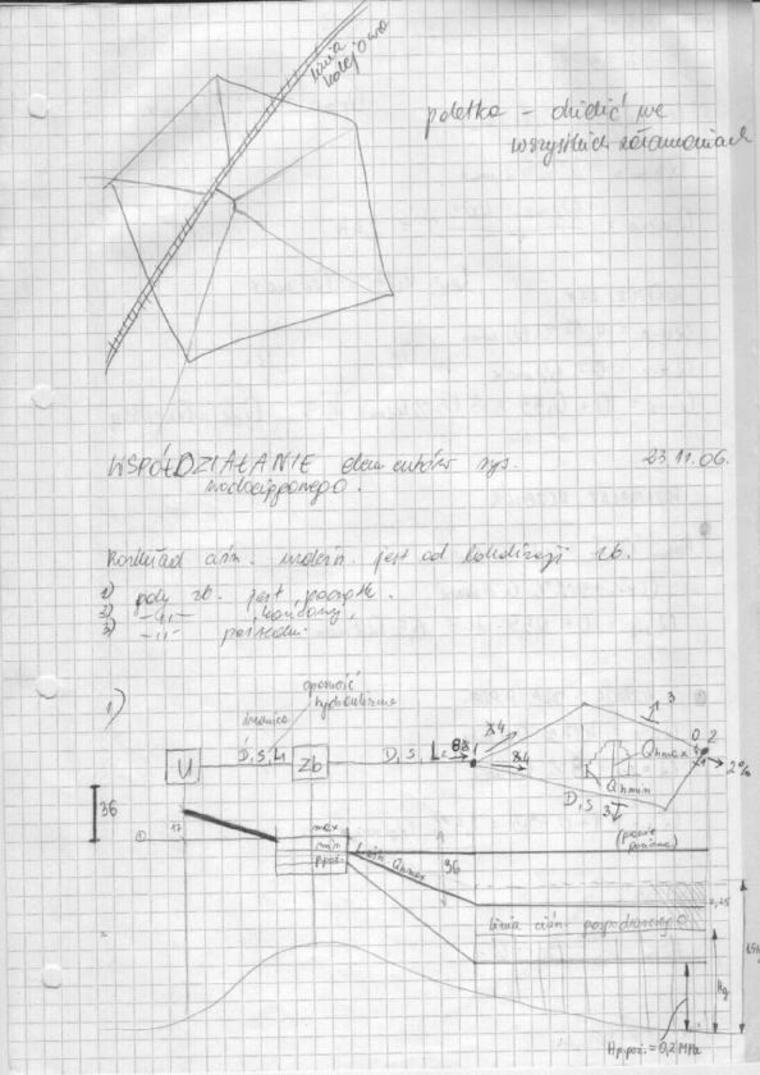 linia
kolejowa
poletka - dzielić we
wszystkich załamaniach
WSPÓŁDZIAŁANIE elementów sys. 23.11.06.
wodociągowego.
Rozkład ciśn. jest od lokalizacji zb.
1) gdy zb. jest początk.
2) -"- końcowy,
3) -"- pośredni
1)
oporność
hydrauliczna
średnica
U
D, S, L1
Zb
D, S, L2
1
3
0 2
2%
Qhmax
Qhmin
D, S
3
36
max
min
ppoż.
Linia Qhmax
36
(prawie
pozioma)
linia ciśn. gospodarczego
Hg
Hp.poż. = 0,2 MPa